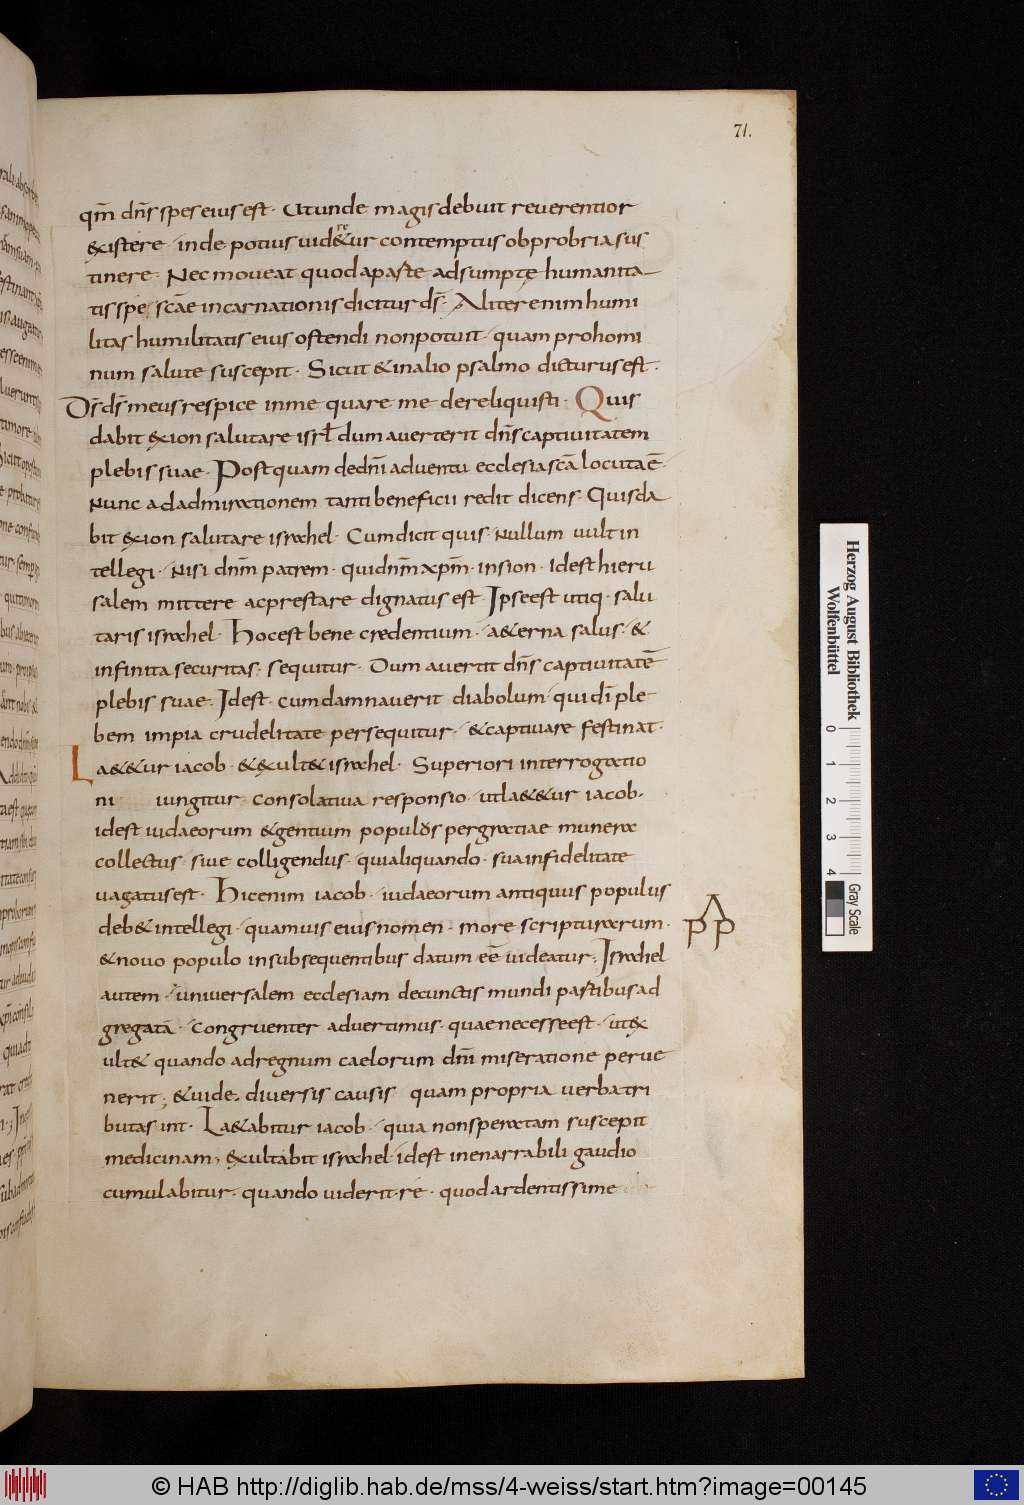 71.
qm̄ dn̄s spes eius est · Utunde magis debuit reuerentior
&xistere · inde potius uid&ur contemptus obprobria sus
re
tinere · Nec moueat quod a paste adsumptę humanita
tis spē scāe incarnationis dicitur ds̄ · Aliter enim humi
litas humilitatis eius ostendi non potuit · quam pro homi
num salute suscepit · Sicut & in alio psalmo dicturus est ·
Ds̄ ds̄ meus respice in me quare me dereliquisti · Quis
dabit exion salutare isrl̄ dum auerterit dn̄s captiuitatem
plebis suae · Postquam de dn̄i aduentu ecclesia scā locuta ē ·
Nunc ad admirationem tanti beneficii redit dicens · Quis da
bit exion salutare israhel · Cum dicit quis · Nullum uult in
tellegi · Nisi dn̄m patrem · qui dn̄m xp̄m · in sion · id est hieru
salem mittere ac prestare dignatus est · Ipse est utiq · salu
taris israhel · Hoc est bene credentium · a&erna salus · &
infinita securitas · sequitur · Dum auertit dn̄s captiuitatē
plebis suae · Idest · cum damnauerit diabolum · qui dī ple
bem impia crudelitate persequitur · & captiuare festinat ·
La&&ur iacob · & exult& israhel · Superiori interrogatio
ni iungitur consolatiua responsio · ut la&&ur iacob ·
id est iudaeorum & gentium populus per gratiae munera
collectus · siue colligendus · qui aliquando · sua infidelitate
uagatus est · Hic enim iacob · iudaeorum antiquus populus
deb& intellegi · quamuis eius nomen · more scripturarum ·
& nouo populo in subsequentibus datum eē uideatur · Israhel
autem · uniuersalem ecclesiam de cunctis mundi pastibus ad
gregatā · congruenter aduertimus · quae necesse est · ut ex
ult& quando ad regnum caelorum dn̄i miseratione perue
nerit ; & uide · diuersis causis quam propria uerba tri
buta sint · La&abitur iacob · quia non speratam suscepit
medicinam, exultabit israhel · id est inenarrabili gaudio
cumulabitur · quando uiderit rē · quod ardentissime
A
PP
Herzog August Bibliothek
Wolfenbüttel
0 1 2 3 4
Gray Scale
© HAB http://diglib.hab.de/mss/4-weiss/start.htm?image=00145